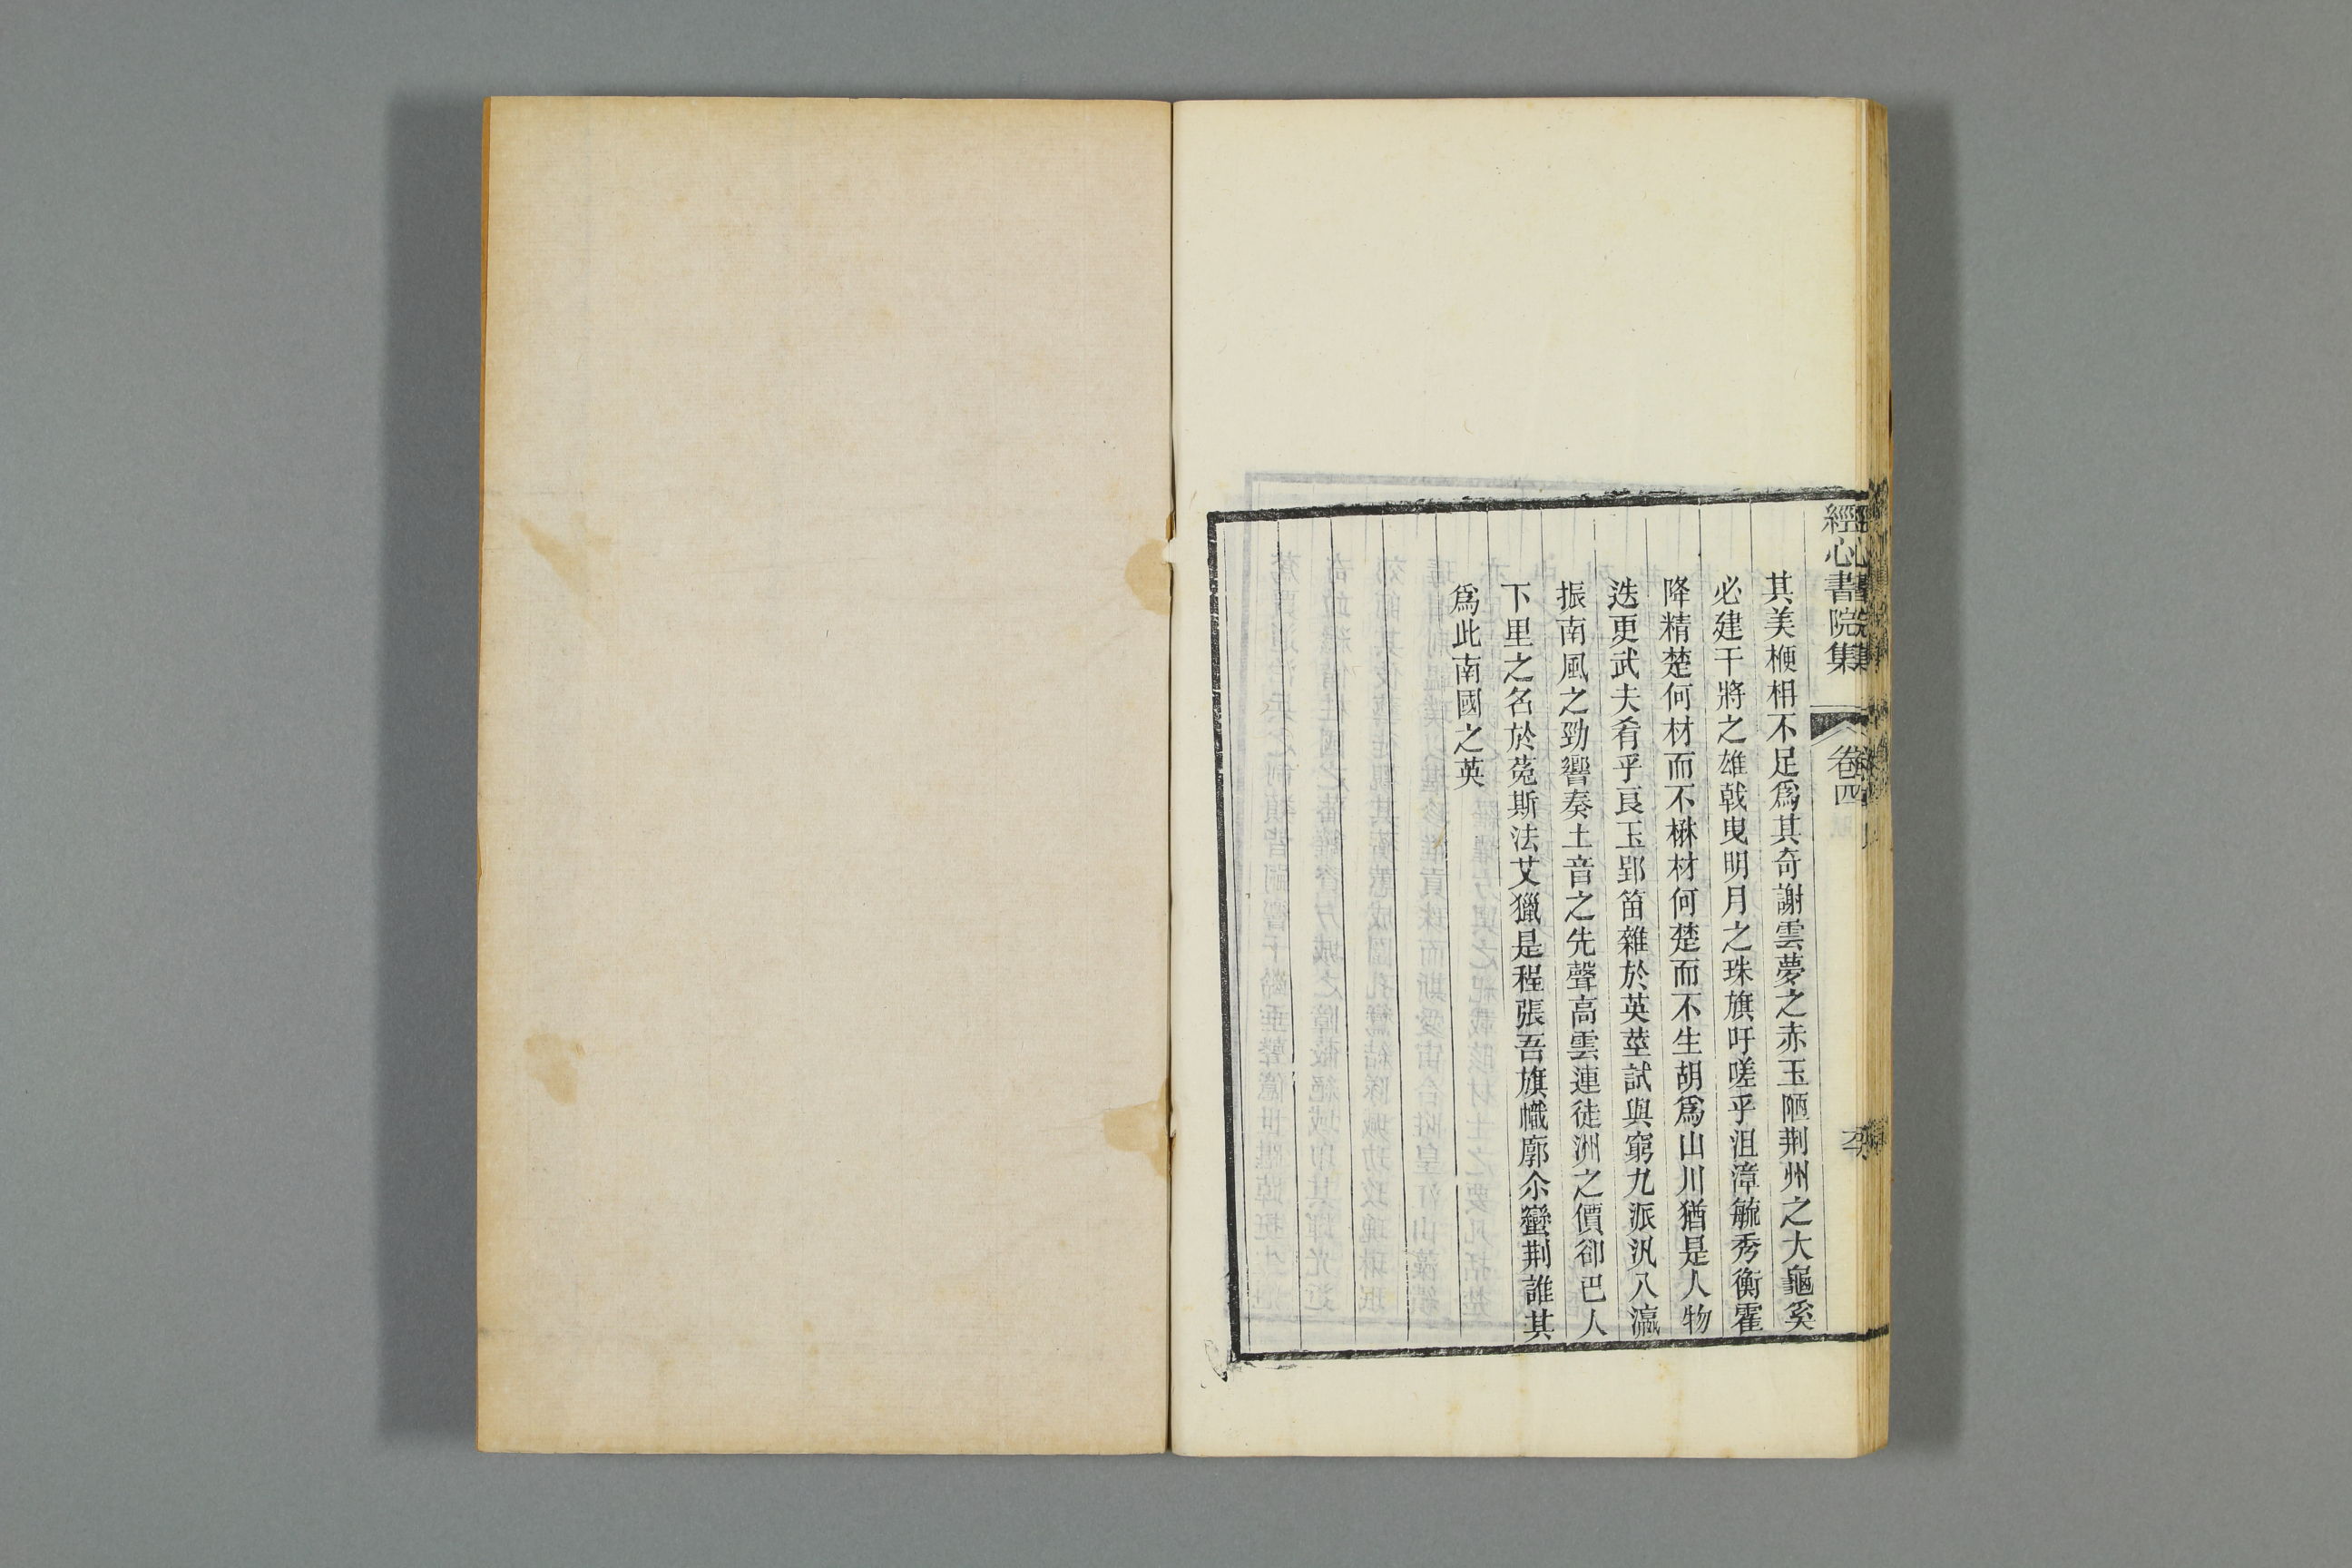 經心書院集
卷四
其美楩枏不足爲其奇謝雲夢之赤玉陋荆州之大龜奚
必建干將之雄戟曳明月之珠旗吁嗟乎沮漳毓秀衡霍
降精楚何材而不楙材何楚而不生胡爲山川猶是人物
迭更武夫肴乎良玉郢笛雜於英莖試與窮九派汎八瀛
振南風之勁響奏土音之先聲高雲連徒洲之價卻巴人
下里之名於菟斯法艾獵是程張吾旗幟廓尒蠻荆誰其
爲此南國之英